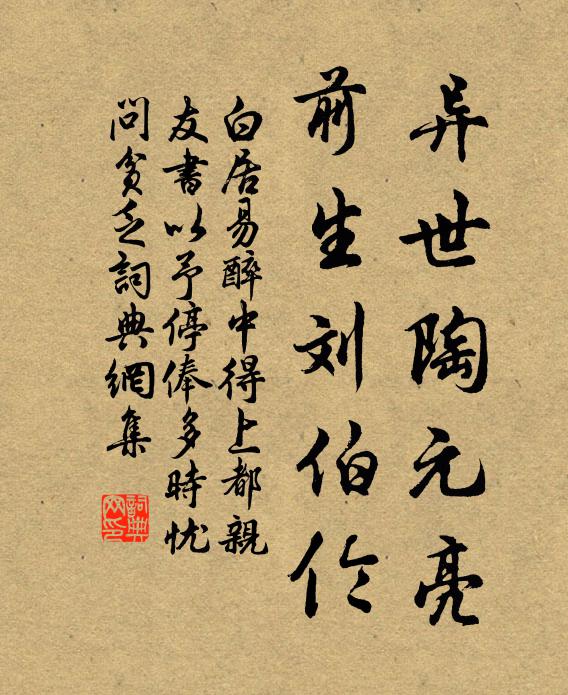 异世陶元亮
前生刘伯伦
白居易醉中得上都親
友書以予停俸多時忧
問貧乏詞典網集
詞典
网印